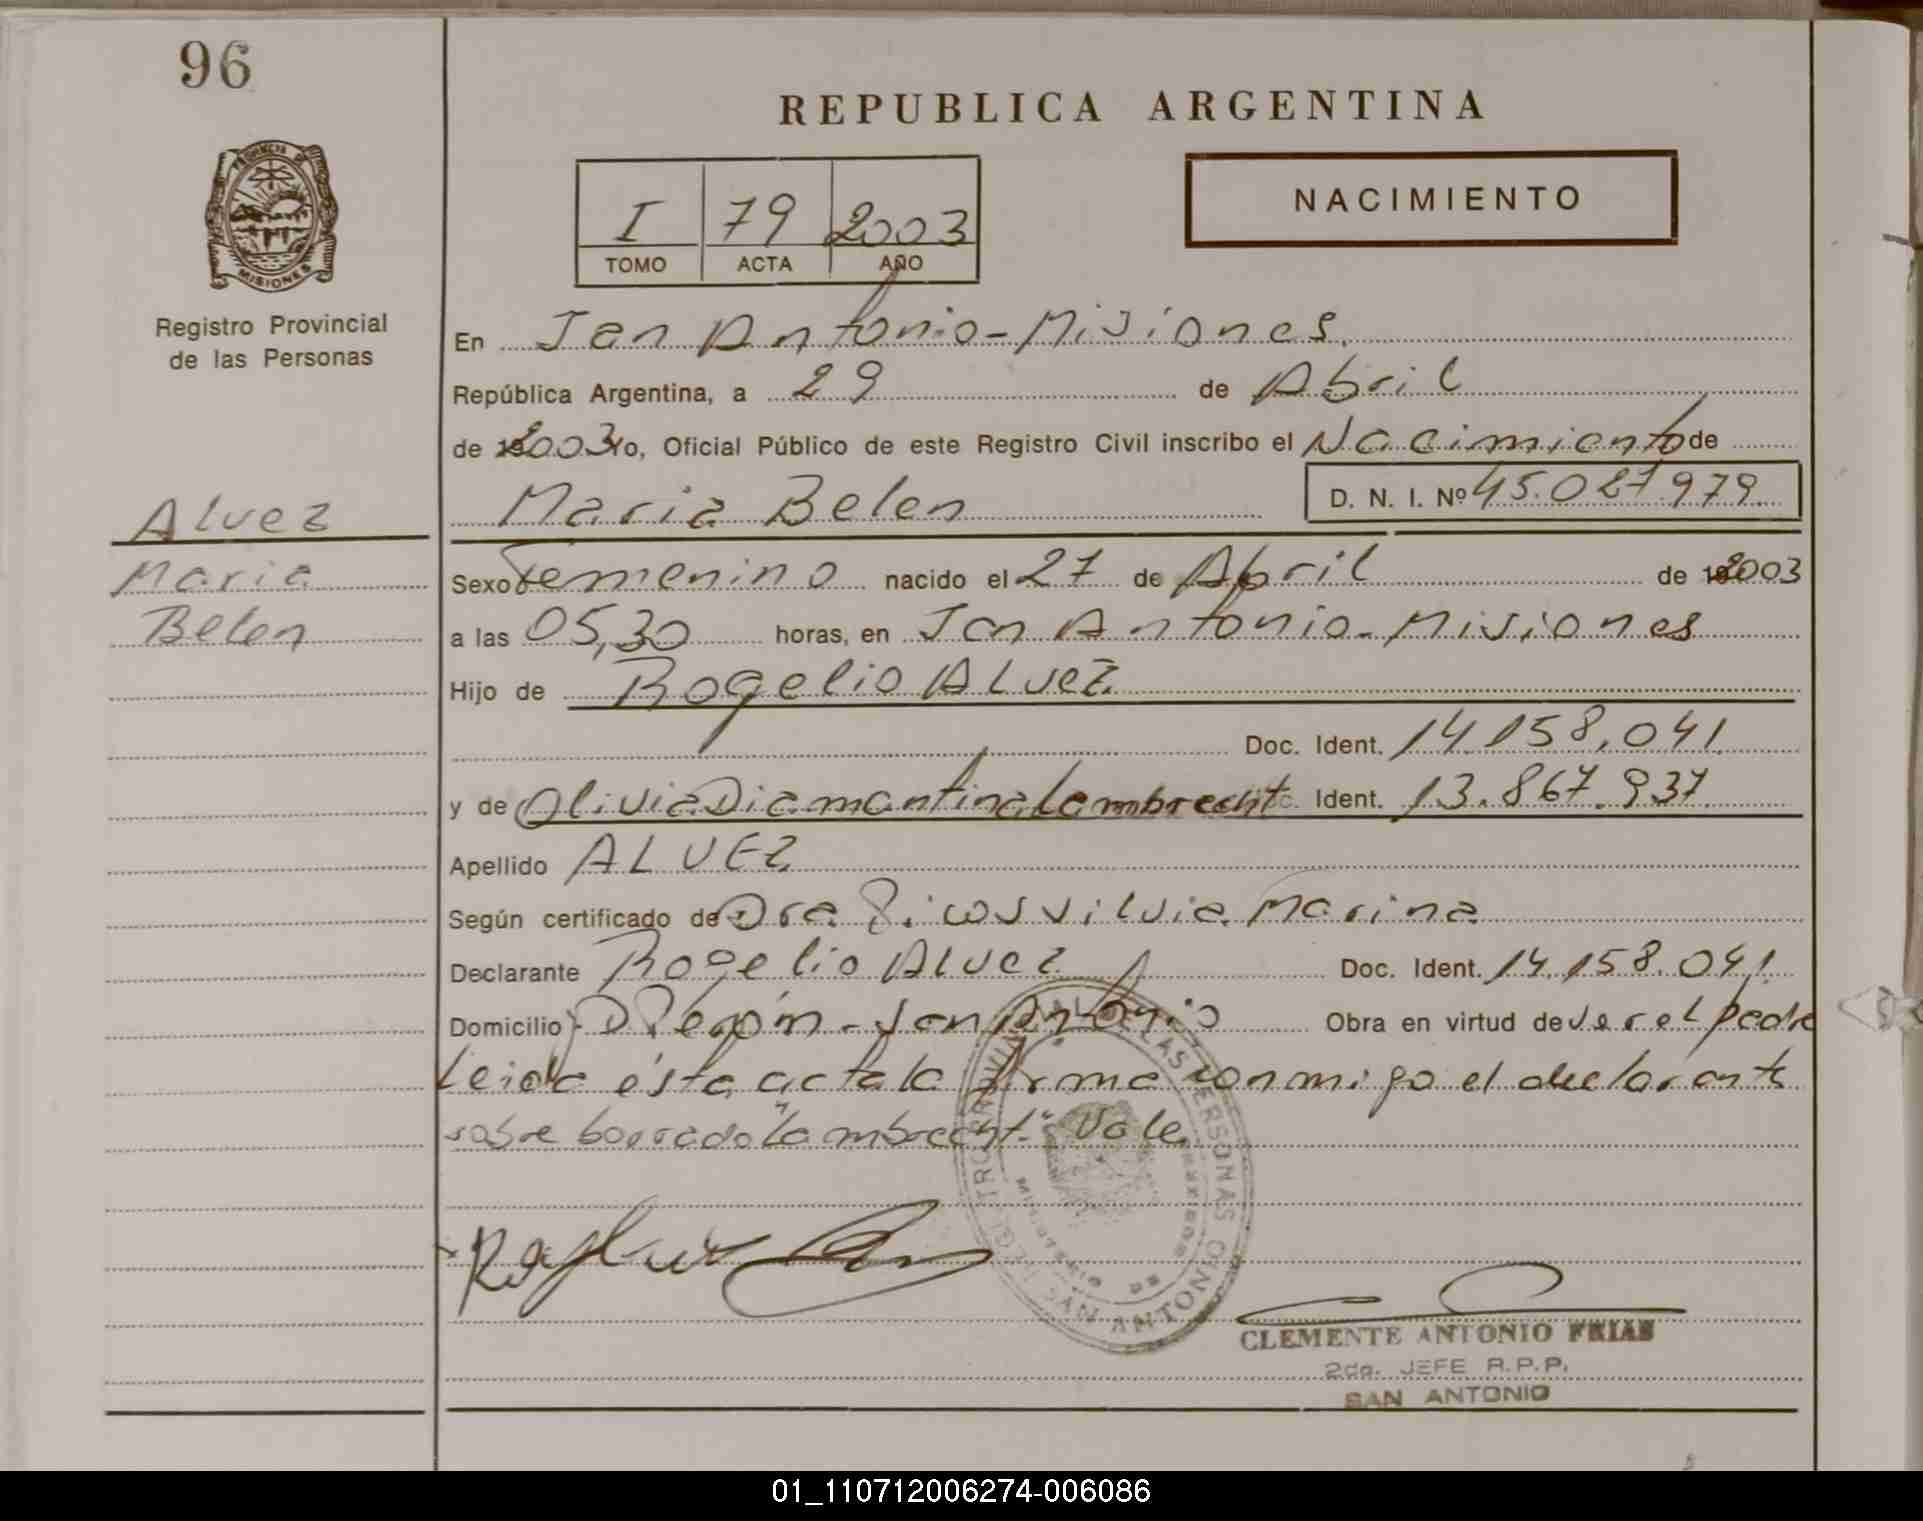 96
REPUBLICA ARGENTINA
NACIMIENTO
I 79 2003
TOMO ACTA AÑO
PROVINCIA DE MISIONES
Registro Provincial
de las Personas
En San Antonio - Misiones.
República Argentina, a 29 de Abril
de 2003 Yo, Oficial Público de este Registro Civil inscribo el Nacimiento de
Maria Belen D. N. I. Nº 45.027.979
Alvez
Maria
Belen
Sexo Femenino nacido el 27 de Abril de 2003
a las 05,30 horas, en San Antonio - Misiones
Hijo de Rogelio Alvez
Doc. Ident. 14.158.041
y de Olivia Diamantina Lambrecht Ident. 13.867.937
Apellido ALVEZ
Según certificado de Dra Silvia Marina
Declarante Rogelio Alvez Doc. Ident. 14.158.041
Domicilio San Antonio Obra en virtud de ser el padre
Leida ésta acta la firma conmigo el declarante
sobre borrado "Lambrecht" Vale
REGISTRO PROVINCIAL DE LAS PERSONAS
MINISTERIO DE
SAN ANTONIO
CLEMENTE ANTONIO FRIAS
2do. JEFE R.P.P.
SAN ANTONIO
01_110712006274-006086